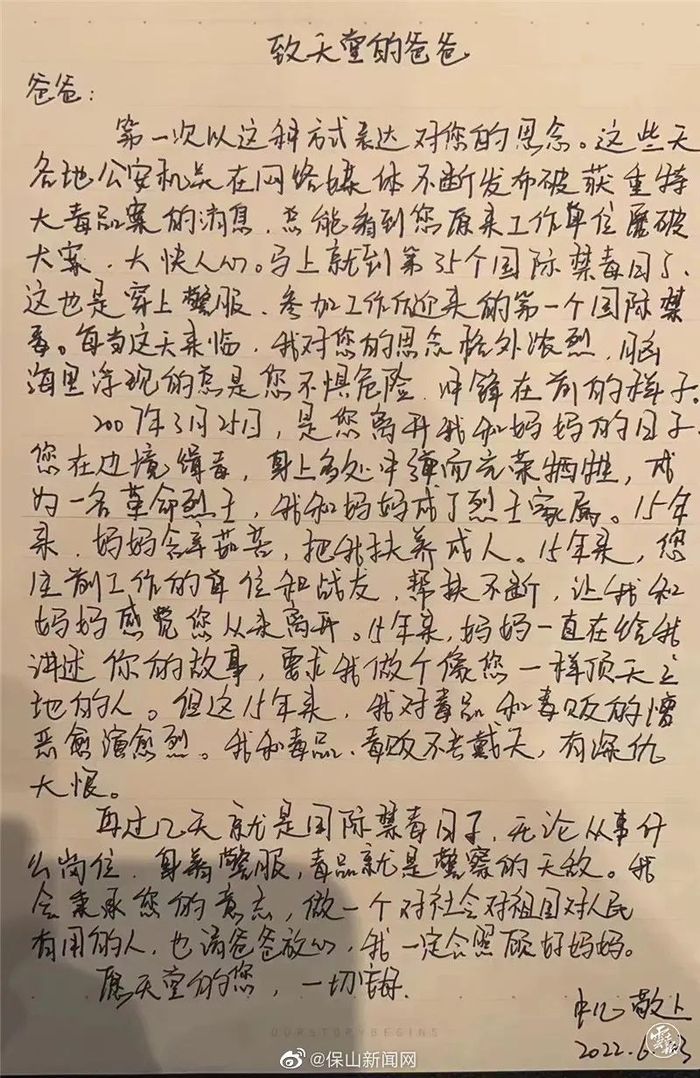 致天堂的爸爸
爸爸：
第一次以这种方式表达对您的思念。这些天
各地公安机关在网络媒体不断发布破获重特
大毒品案的消息，总能看到您原来工作单位屡破
大案，大快人心。马上就到第35个国际禁毒日了，
这也是穿上警服、参加工作后迎来的第一个国际禁
毒。每当这天来临，我对您的思念格外浓烈，脑
海里浮现的总是您不惧危险、冲锋在前的样子。
2007年3月25日，是您离开我和妈妈的日子，
您在边境缉毒，身上多处中弹而光荣牺牲，成
为一名革命烈士，我和妈妈成了烈士家属。15年
来，妈妈含辛茹苦，把我扶养成人。15年来，您
生前工作的单位和战友，帮扶不断，让我和
妈妈感觉您从未离开。15年来，妈妈一直在给我
讲述你的故事，要求我做个像您一样顶天立
地的人。但这15年来，我对毒品和毒贩的憎
恶愈演愈烈。我和毒品、毒贩不共戴天，有深仇
大恨。
再过几天就是国际禁毒日子，无论从事什
么岗位，身着警服，毒品就是警察的天敌。我
会秉承您的意志，做一个对社会对祖国对人民
有用的人，也请爸爸放心，我一定会照顾好妈妈。
愿天堂的您，一切安好.
敬上
2022.6.
OURSTORYBEGINS
@保山新闻网